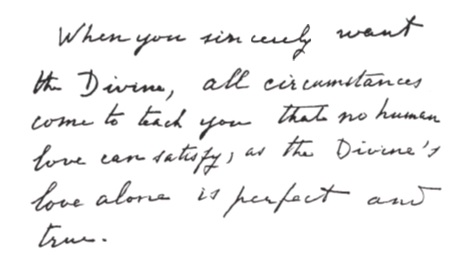 When you sincerely want
the Divine, all circumstances
come to teach you that no human
love can satisfy, as the Divine's
love alone is perfect and
true.